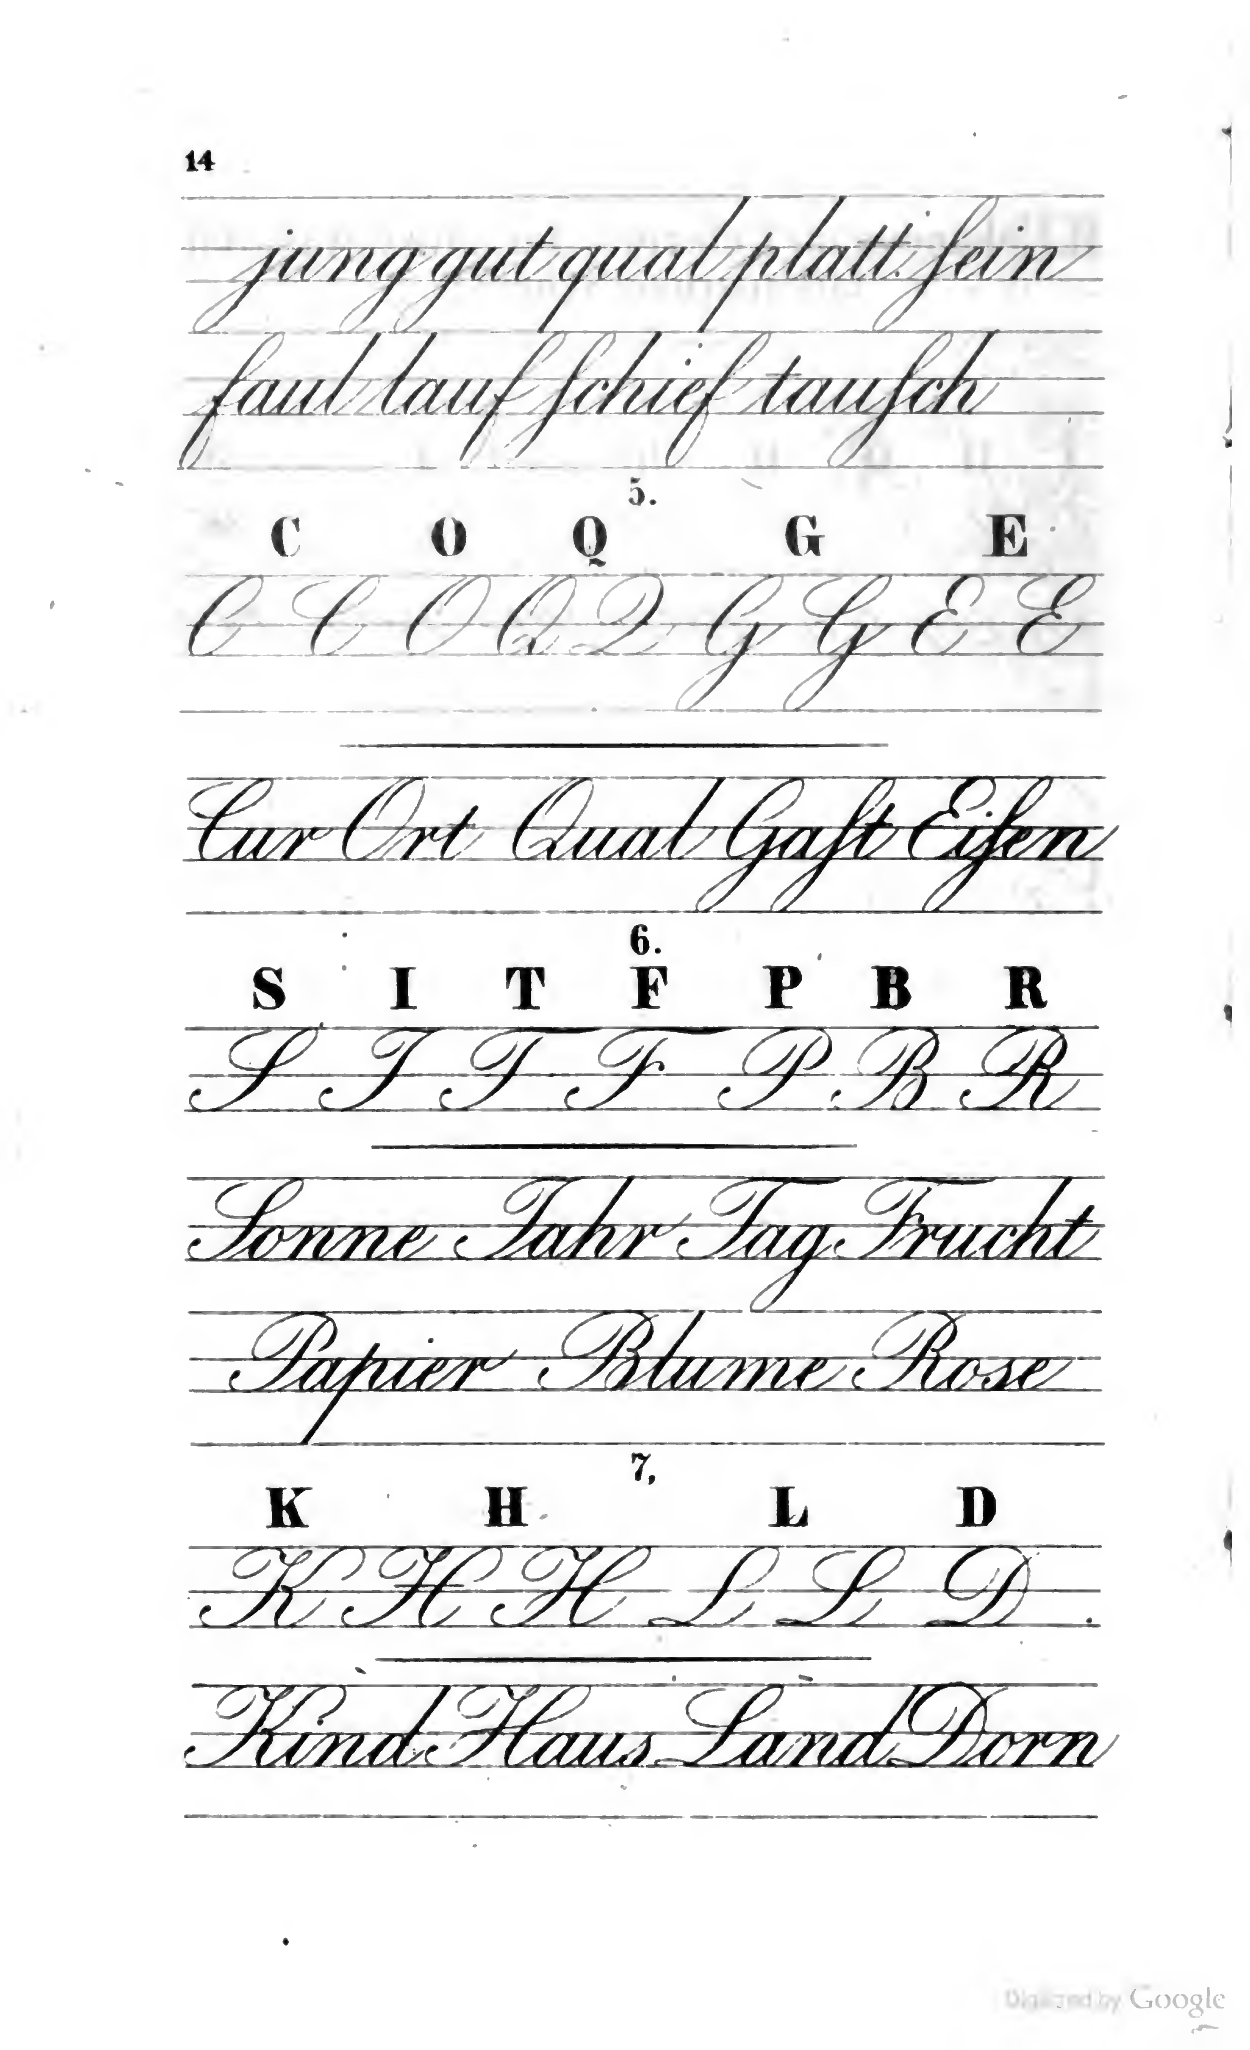 14
jung gut qual platt ſein
faul lauf ſchief tauſch
5.
C O Q G E
C C O Q Q G G E E
Cur Ort Qual Gaſt Eiſen
6.
S I T F P B R
S I T F P B R
Sonne Jahr Tag Frucht
Papier Blume Rose
7,
K H L D
K H H L L D
Kind Haus Land Dorn
Digitized by Google